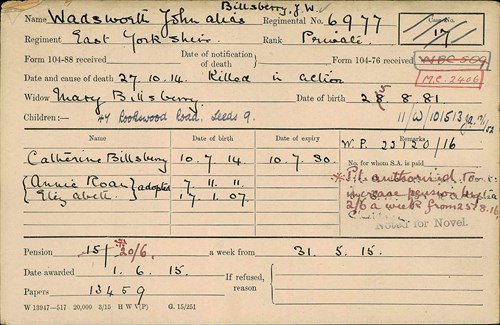 Billsberry, J.W.
Name Wadsworth John alias Regimental No. 6977 Case No. 17
Regiment East Yorkshire Rank Private
Form 104-88 received Date of notification of death Form 104-76 received
M.C. 2406
Date and cause of death 27.10.14. Killed in action
Widow Mary Billsberry. Date of birth 28.8.81
Children:— 47 Rookwood Road, Leeds 9. 11/W/10513
Name Date of birth Date of expiry Remarks
W.P. 22120/16
Catherine Billsberry 10.7.14. 10.7.30. No. for whom S.A. is paid
Annie Roan adopted 7.11.11
Elizabeth 17.1.07.
S.C. authorised
increase pension
2/6 a week from 25.8.16
Noted for Novel.
Pension 15/ 20/6. a week from 31.5.15.
Date awarded 1.6.15. If refused, reason
Papers 13459
W 13947—517 20,000 3/15 H W V(P) G. 15/251